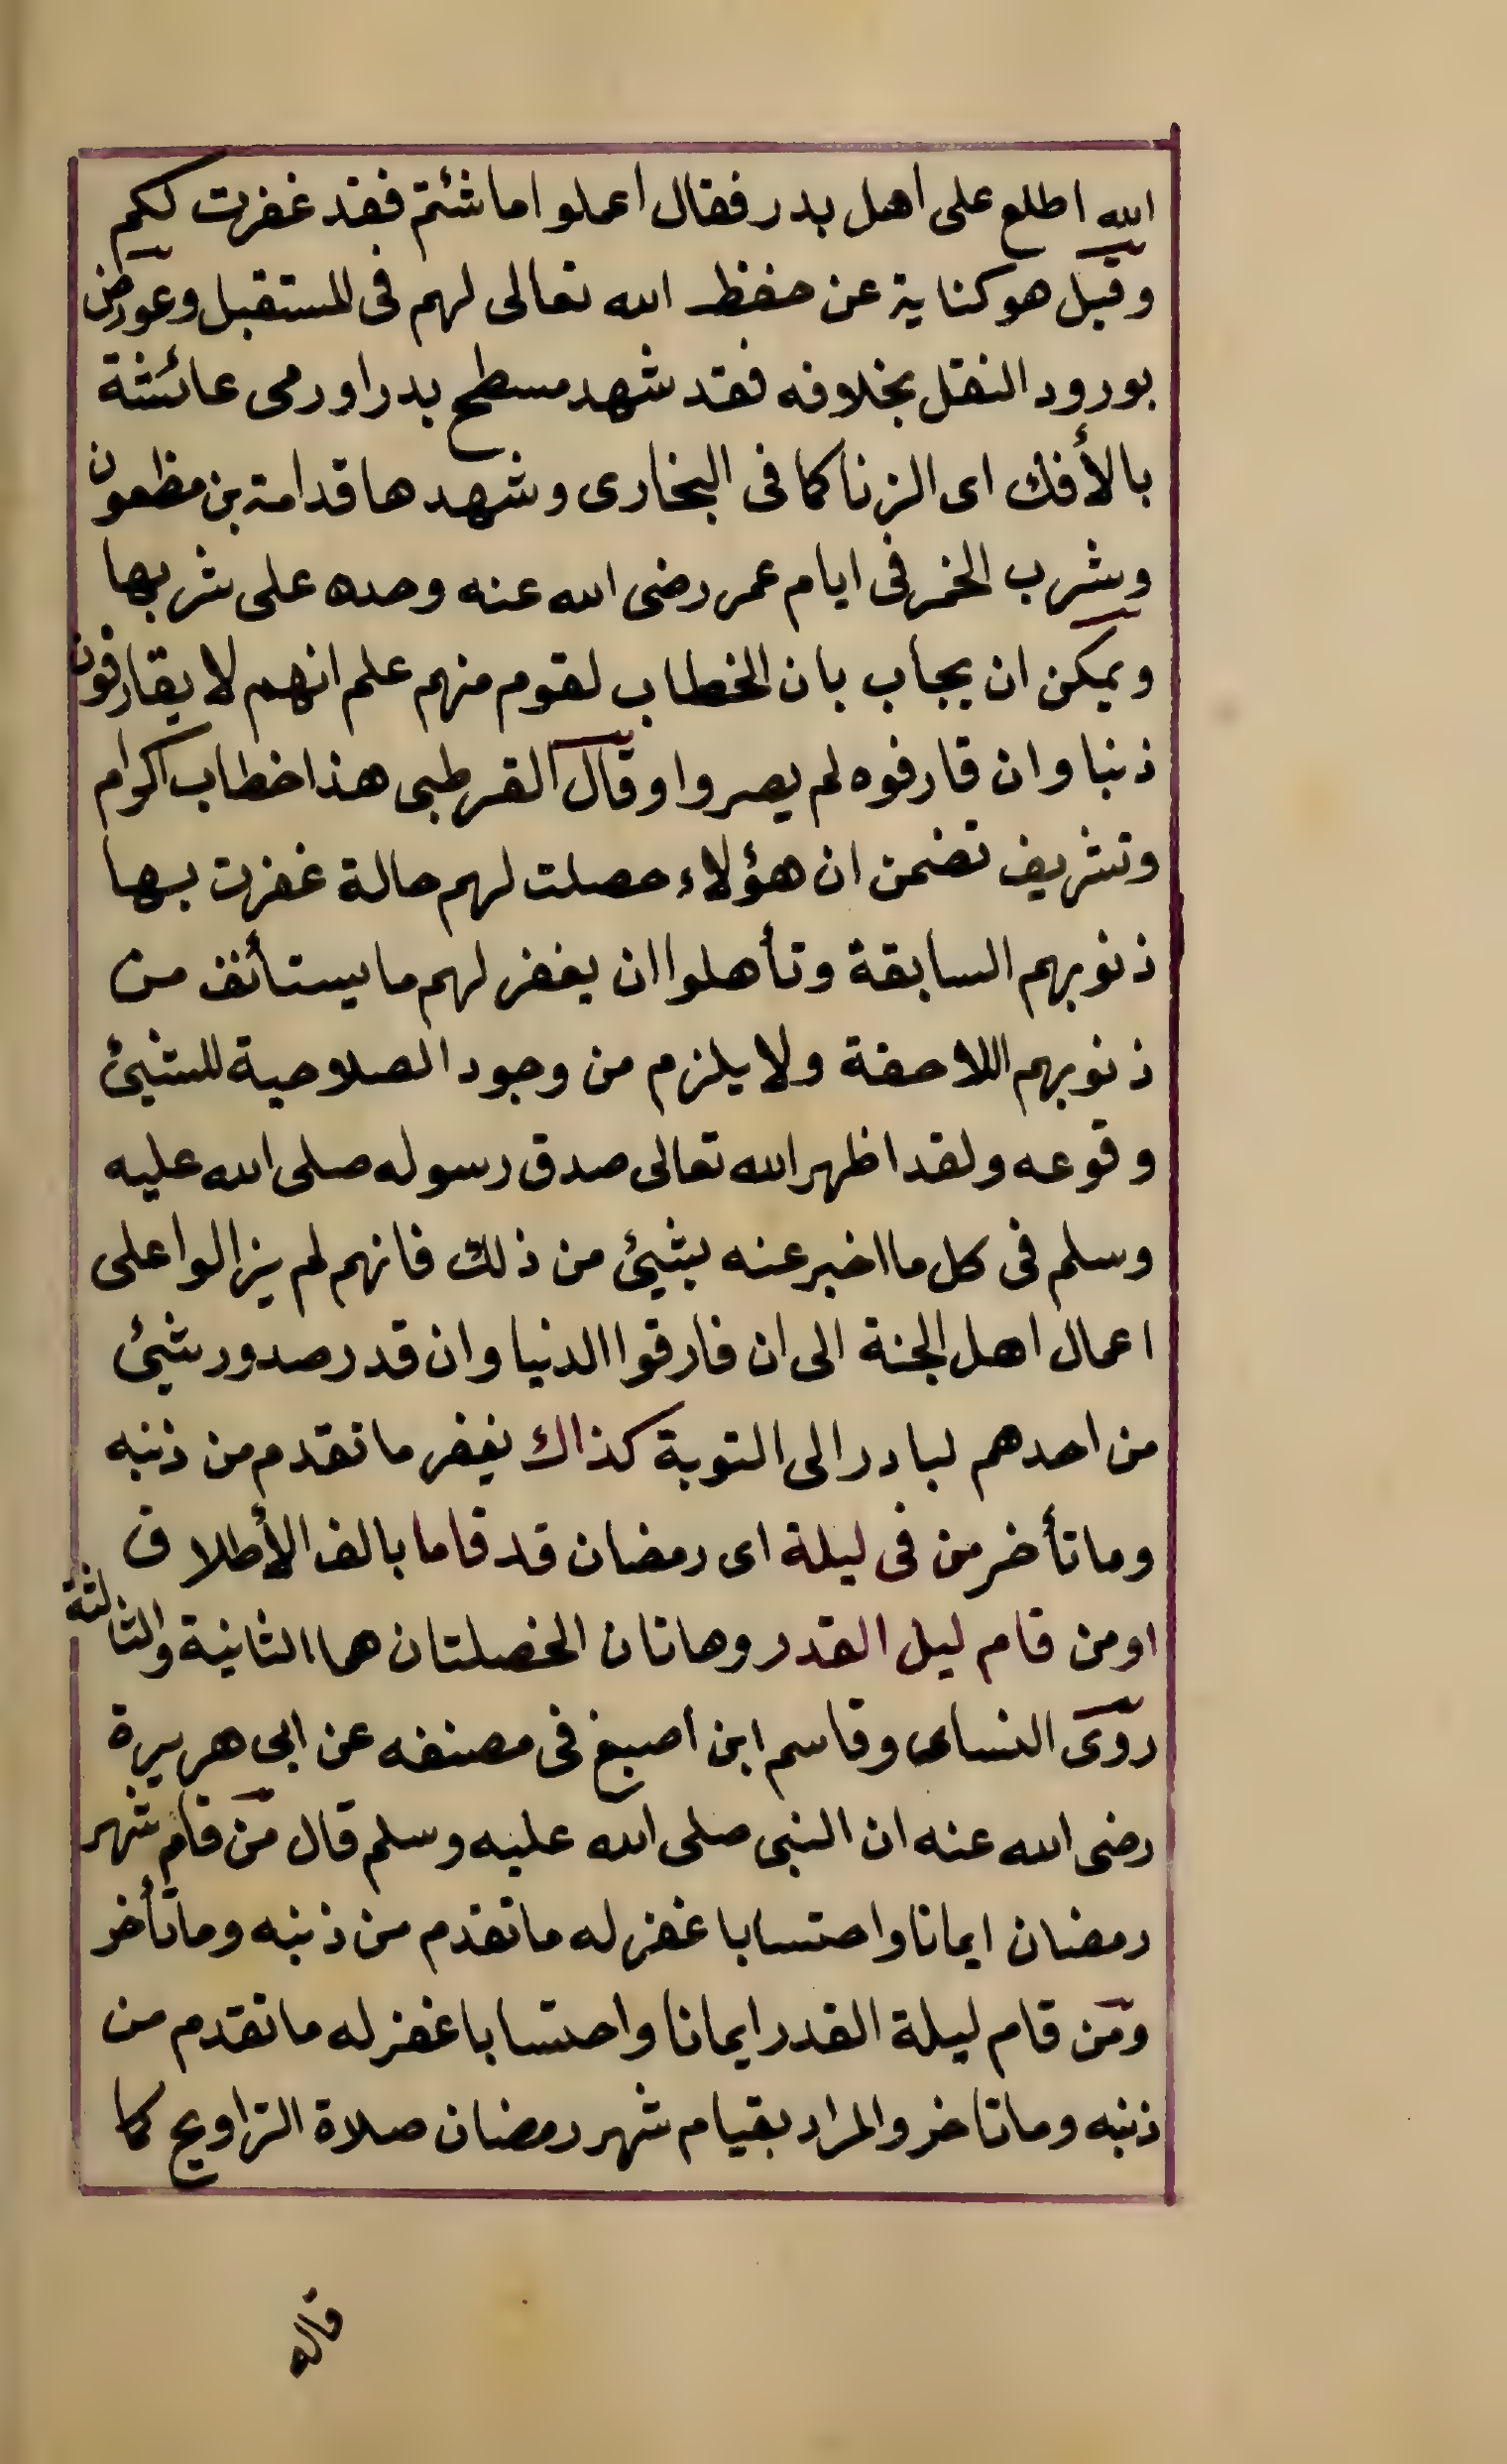 الله اطلع على اهل بدر فقال اعملوا ما شئتم فقد غفرت لكم
وقيل هو كناية عن حفظ الله تعالى لهم فى المستقبل وعورض
بورود النقل بخلافه فقد شهد مسطح بدرا ورمى عائشة
بالأفك اى الزنا كما فى البخارى وشهدها قدامة بن مظعون
وشرب الخمر فى ايام عمر رضى الله عنه وحده على شربها
ويمكن ان يجاب بان الخطاب لقوم منهم علم انهم لا يقارفون
ذنبا وان قارفوه لم يصروا وقال القرطبى هذا خطاب اكرام
وتشريف تضمن ان هؤلاء حصلت لهم حالة غفرت بها
ذنوبهم السابقة وتأهلوا ان يغفر لهم ما يستأنف من
ذنوبهم اللاحقة ولا يلزم من وجود الصلاحية للشيئ
وقوعه ولقد اظهر الله تعالى صدق رسوله صلى الله عليه
وسلم فى كل ما اخبر عنه بشيئ من ذلك فانهم لم يزالوا على
اعمال اهل الجنة الى ان فارقوا الدنيا وان قدر صدور شيئ
من احدهم لبادر الى التوبة كذاك يغفر ما تقدم من ذنبه
وما تأخر من فى ليلة اى رمضان قد قاما بالف الأطلاق
او من قام ليل القدر وهاتان الخصلتان هما الثانية والثالثة
روى النساى وقاسم ابن اصبغ فى مصنفه عن ابى هريرة
رضى الله عنه ان النبى صلى الله عليه وسلم قال من قام شهر
رمضان ايمانا واحتسابا غفر له ما تقدم من ذنبه وما تأخر
ومن قام ليلة القدر ايمانا واحتسابا غفر له ما تقدم من
ذنبه وما تاخر والمراد بقيام شهر رمضان صلاة التراويح كما
قاله